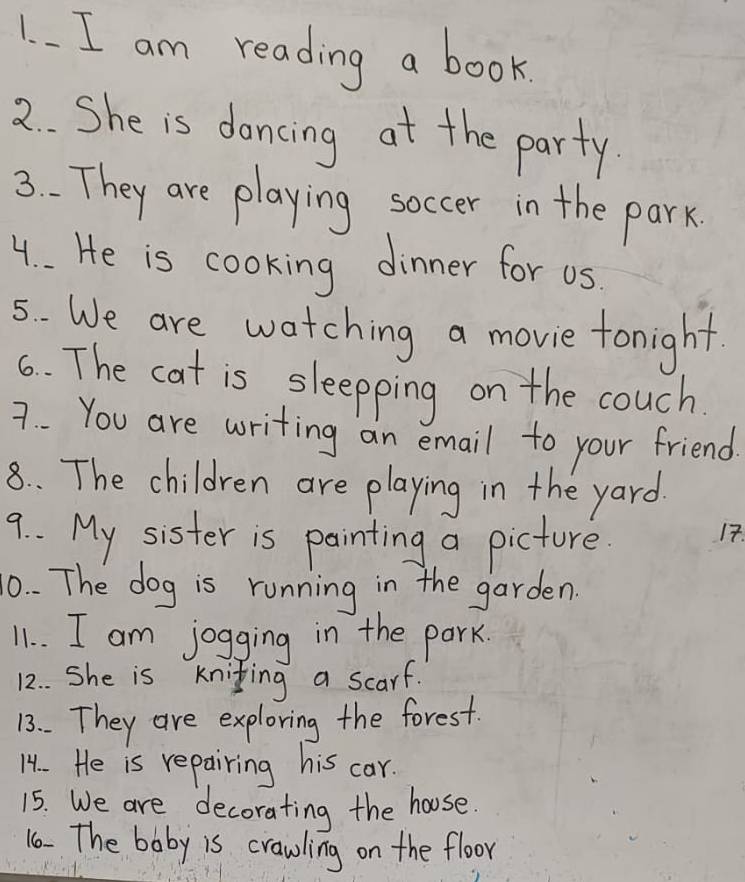 1.- I am reading a book.
2.- She is dancing at the party.
3.- They are playing soccer in the park.
4.- He is cooking dinner for us.
5.- We are watching a movie tonight.
6.- The cat is sleepping on the couch.
7.- You are writing an email to your friend.
8.- The children are playing in the yard.
9.- My sister is painting a picture.
17.
10.- The dog is running in the garden.
11.- I am jogging in the park.
12.- She is kniting a scarf.
13.- They are exploring the forest.
14.- He is repairing his car.
15. We are decorating the house.
16- The baby is crawling on the floor